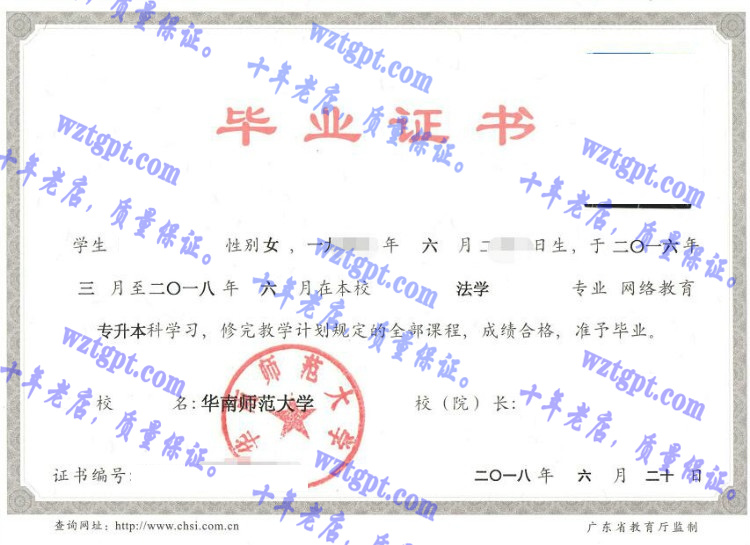 毕业证书
学生 性别女,一九 年 六 月二 日生,于二〇一六年
三 月至二〇一八年 六 月在本校 法学 专业 网络教育
专升本科学习,修完教学计划规定的全部课程,成绩合格,准予毕业。
校 名:华南师范大学 校(院)长:
华南师范大学
证书编号: 二〇一八年 六 月 二十 日
查询网址:http://www.chsi.com.cn 广东省教育厅监制
十年老店,质量保证。
wztgpt.com
十年老店,质量保证。
wztgpt.com
十年老店,质量保证。
wztgpt.com
十年老店,质量保证。
wztgpt.com
十年老店,质量保证。
wztgpt.com
十年老店,质量保证。
wztgpt.com
十年老店,质量保证。
wztgpt.com
十年老店,质量保证。